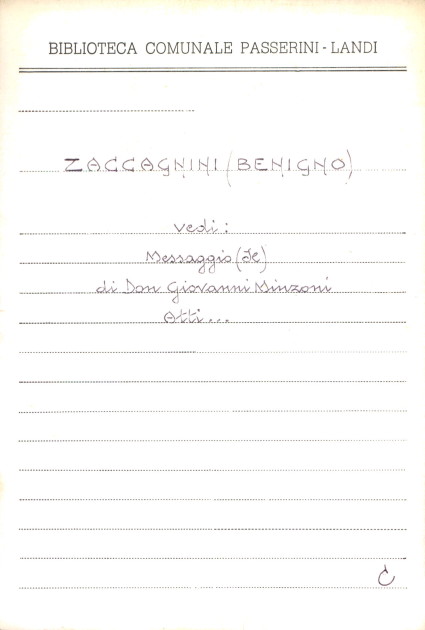 BIBLIOTECA COMUNALE PASSERINI-LANDI
ZACCAGNINI (BENIGNO)
vedi:
Messaggio (Il)
di Don Giovanni Minzoni
Atti...
C